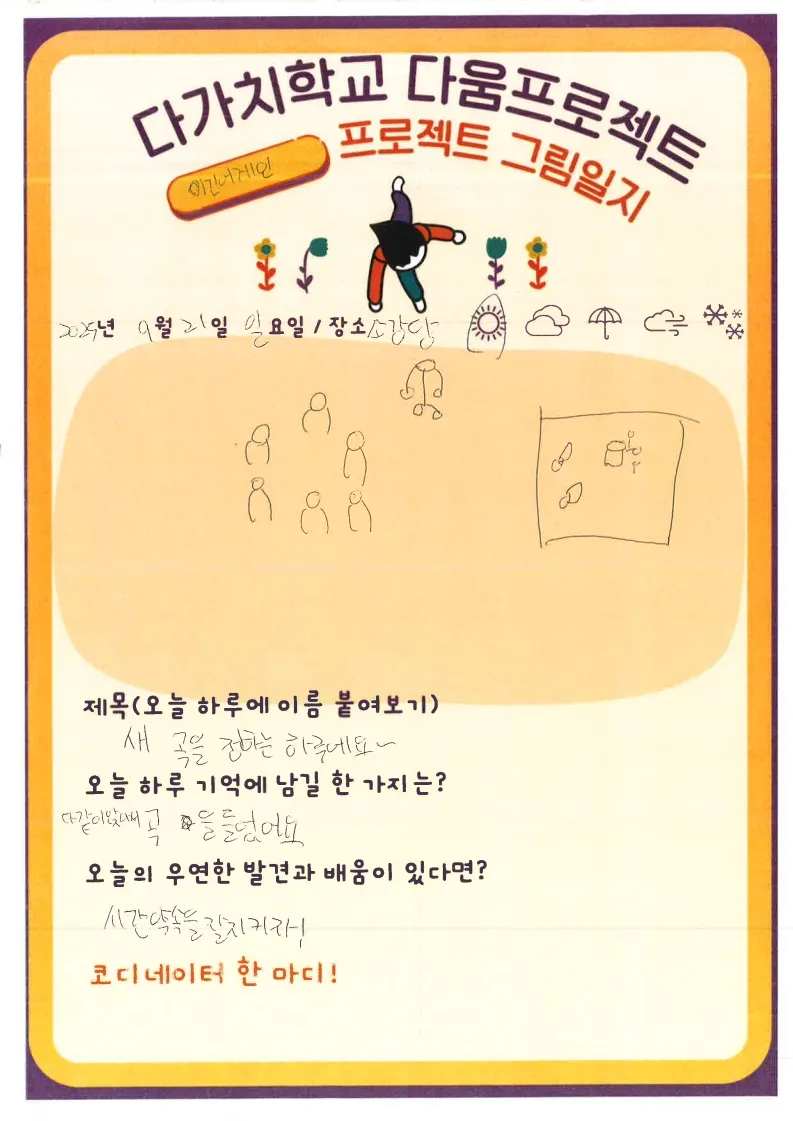 다가치학교 다움프로젝트
프로젝트 그림일지
2025년 9월 21일 일요일 / 장소 소강당
제목(오늘 하루에 이름 붙여보기)
새 곡을 정하는 하루네요~
오늘 하루 기억에 남길 한 가지는?
다같이 곡 을 들었어요
오늘의 우연한 발견과 배움이 있다면?
시간약속을 잘지키자!
코디네이터 한 마디!